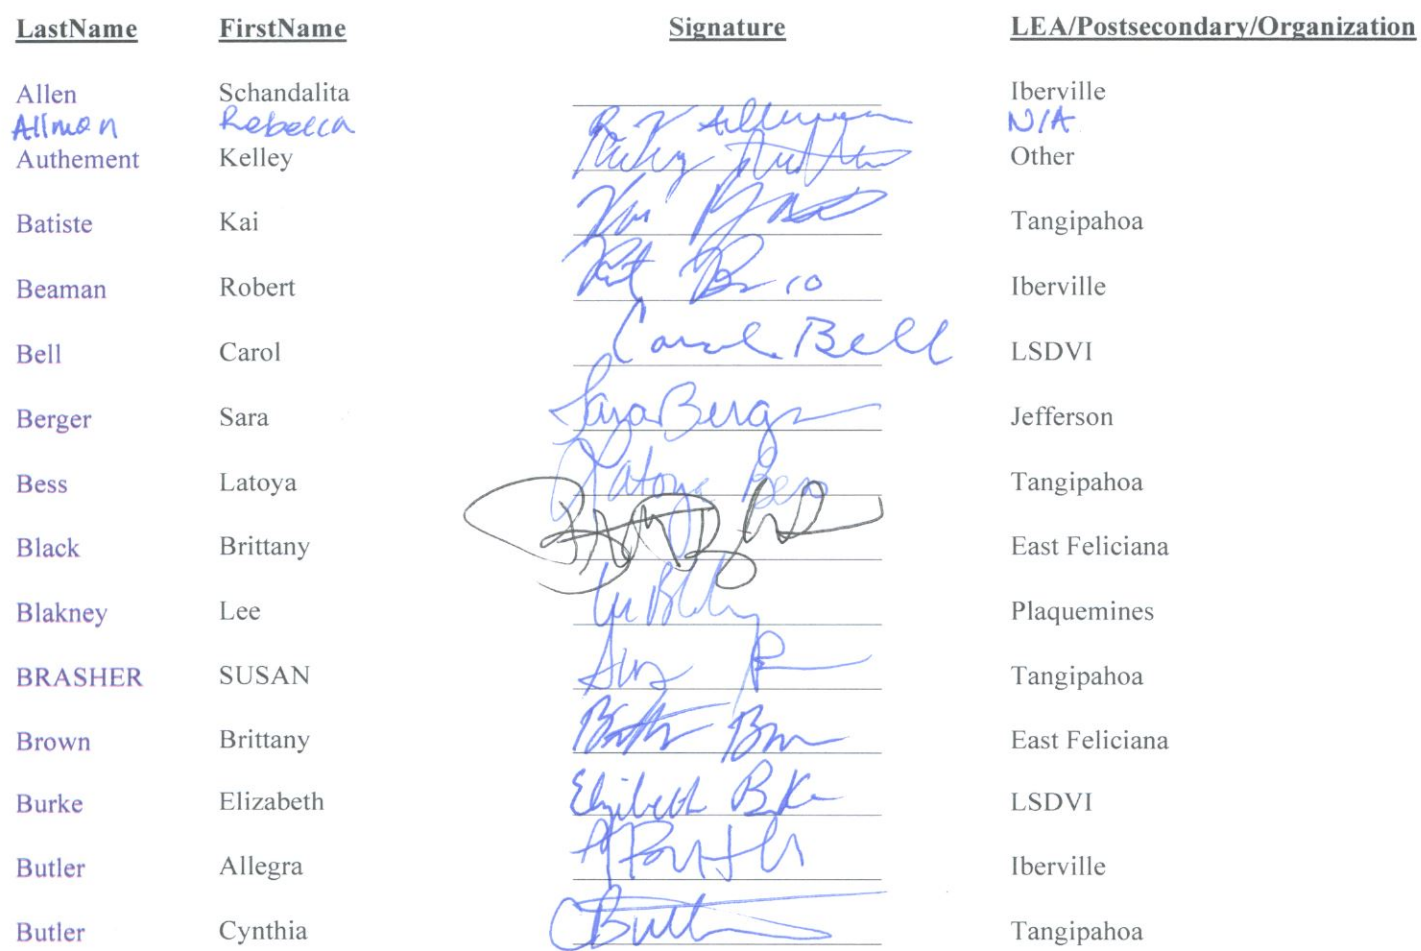 LastName FirstName Signature LEA/Postsecondary/Organization
Allen Schandalita Iberville
Allman Rebecca N/A
Authement Kelley Other
Batiste Kai Tangipahoa
Beaman Robert Iberville
Bell Carol Carol Bell LSDVI
Berger Sara Sara Berger Jefferson
Bess Latoya Latoya Bess Tangipahoa
Black Brittany East Feliciana
Blakney Lee Plaquemines
BRASHER SUSAN Tangipahoa
Brown Brittany East Feliciana
Burke Elizabeth Elizabeth Burke LSDVI
Butler Allegra Iberville
Butler Cynthia Tangipahoa